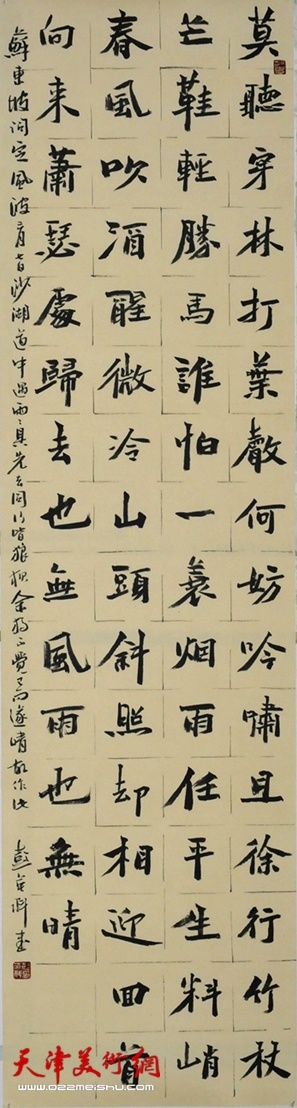 莫聽穿林打葉聲何妨吟嘯且徐行竹杖
芒鞋輕勝馬誰怕一蓑烟雨任平生料峭
春風吹酒醒微冷山頭斜照却相迎回首
向来蕭瑟處歸去也無風雨也無晴
蘇東坡詞定風波三月七日沙湖道中遇雨雨具先去同行皆狼狽余独不覺已而遂晴故作此
彭英科書
天津美术網
www.022meishu.com